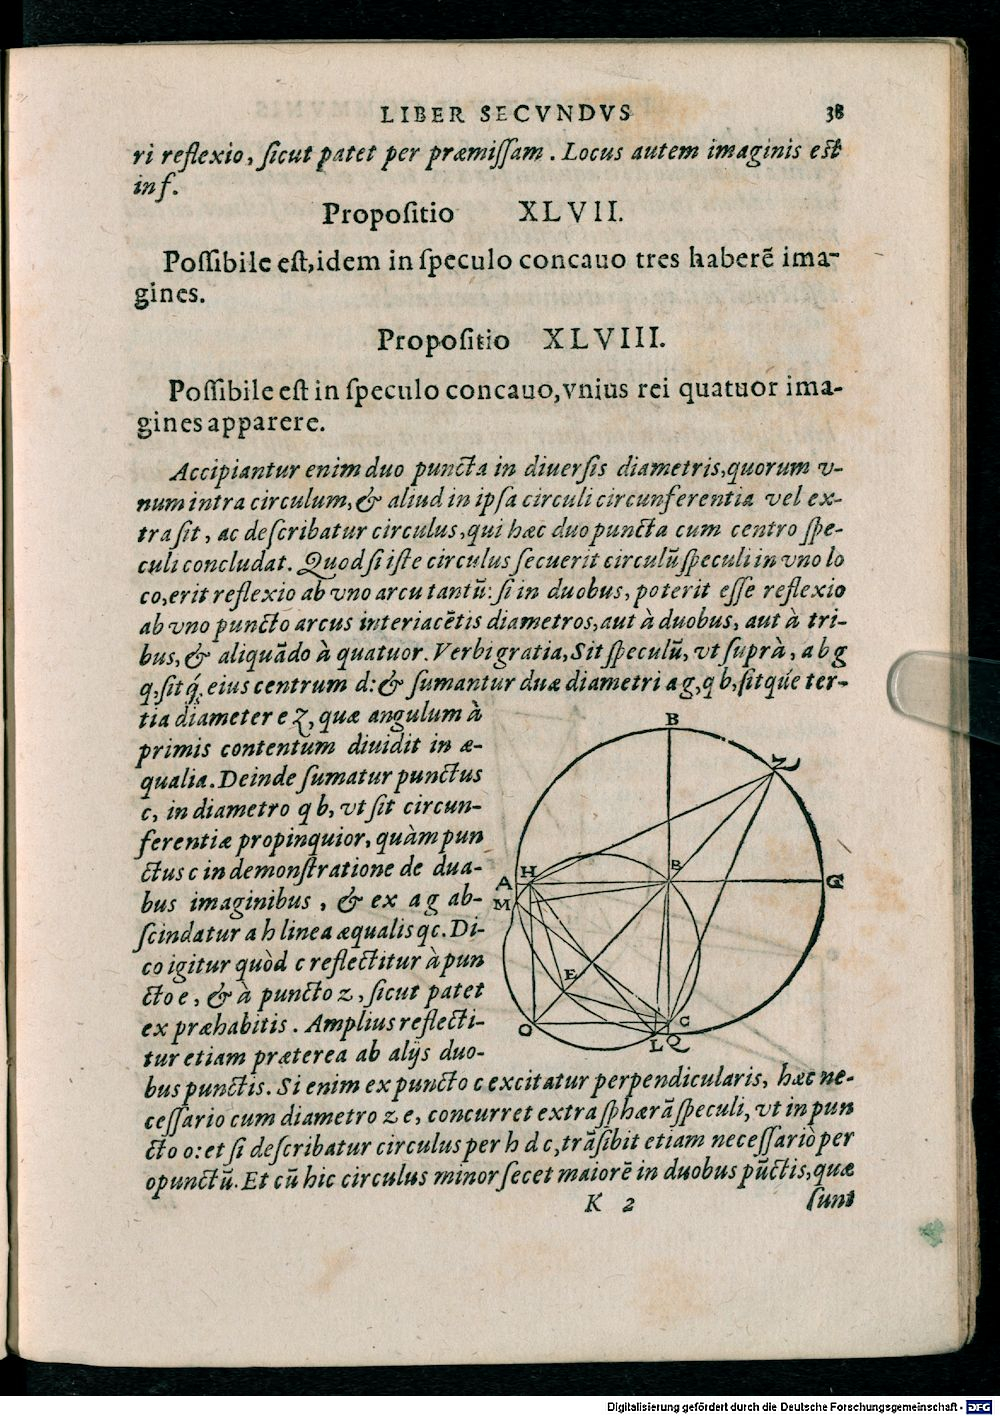 LIBER SECVNDVS 38
ri reflexio, ſicut patet per præmiſſam. Locus autem imaginis eſt
in f.
Propoſitio XLVII.
Poſſibile eſt, idem in ſpeculo concauo tres haberẽ ima-
gines.
Propoſitio XLVIII.
Poſſibile eſt in ſpeculo concauo, vnius rei quatuor ima-
gines apparere.
Accipiantur enim duo puncta in diuerſis diametris, quorum v-
num intra circulum, & aliud in ipſa circuli circunferentia vel ex-
tra ſit, ac deſcribatur circulus, qui hæc duo puncta cum centro ſpe-
culi concludat. Quod ſi iſte circulus ſecuerit circulũ ſpeculi in vno lo
co, erit reflexio ab vno arcu tantũ: ſi in duobus, poterit eſſe reflexio
ab vno puncto arcus interiacẽtis diametros, aut à duobus, aut à tri-
bus, & aliquãdo à quatuor. Verbi gratia, Sit ſpeculũ, vt ſuprà, a b g
q, ſitq́; eius centrum d: & ſumantur duæ diametri a g, q b, ſitqúe ter-
tia diameter e z, quæ angulum à
primis contentum diuidit in æ-
qualia. Deinde ſumatur punctus
c, in diametro q b, vt ſit circun-
ferentiæ propinquior, quàm pun
ctus c in demonſtratione de dua-
bus imaginibus, & ex a g ab-
ſcindatur a h linea æqualis qc. Di-
co igitur quòd c reflectitur à pun
cto e, & à puncto z, ſicut patet
ex præhabitis. Amplius reflecti-
tur etiam præterea ab alijs duo-
bus punctis. Si enim ex puncto c excitatur perpendicularis, hæc ne-
ceſſario cum diametro z e, concurret extra ſphærã ſpeculi, vt in pun
cto o: et ſi deſcribatur circulus per h d c, trãſibit etiam neceſſariò per
o punctũ. Et cũ hic circulus minor ſecet maiorẽ in duobus pũctis, quæ
K 2 ſunt
B
Z
H
B
A
G
M
E
O
C
L
Q
Digitalisierung gefördert durch die Deutsche Forschungsgemeinschaft - DFG